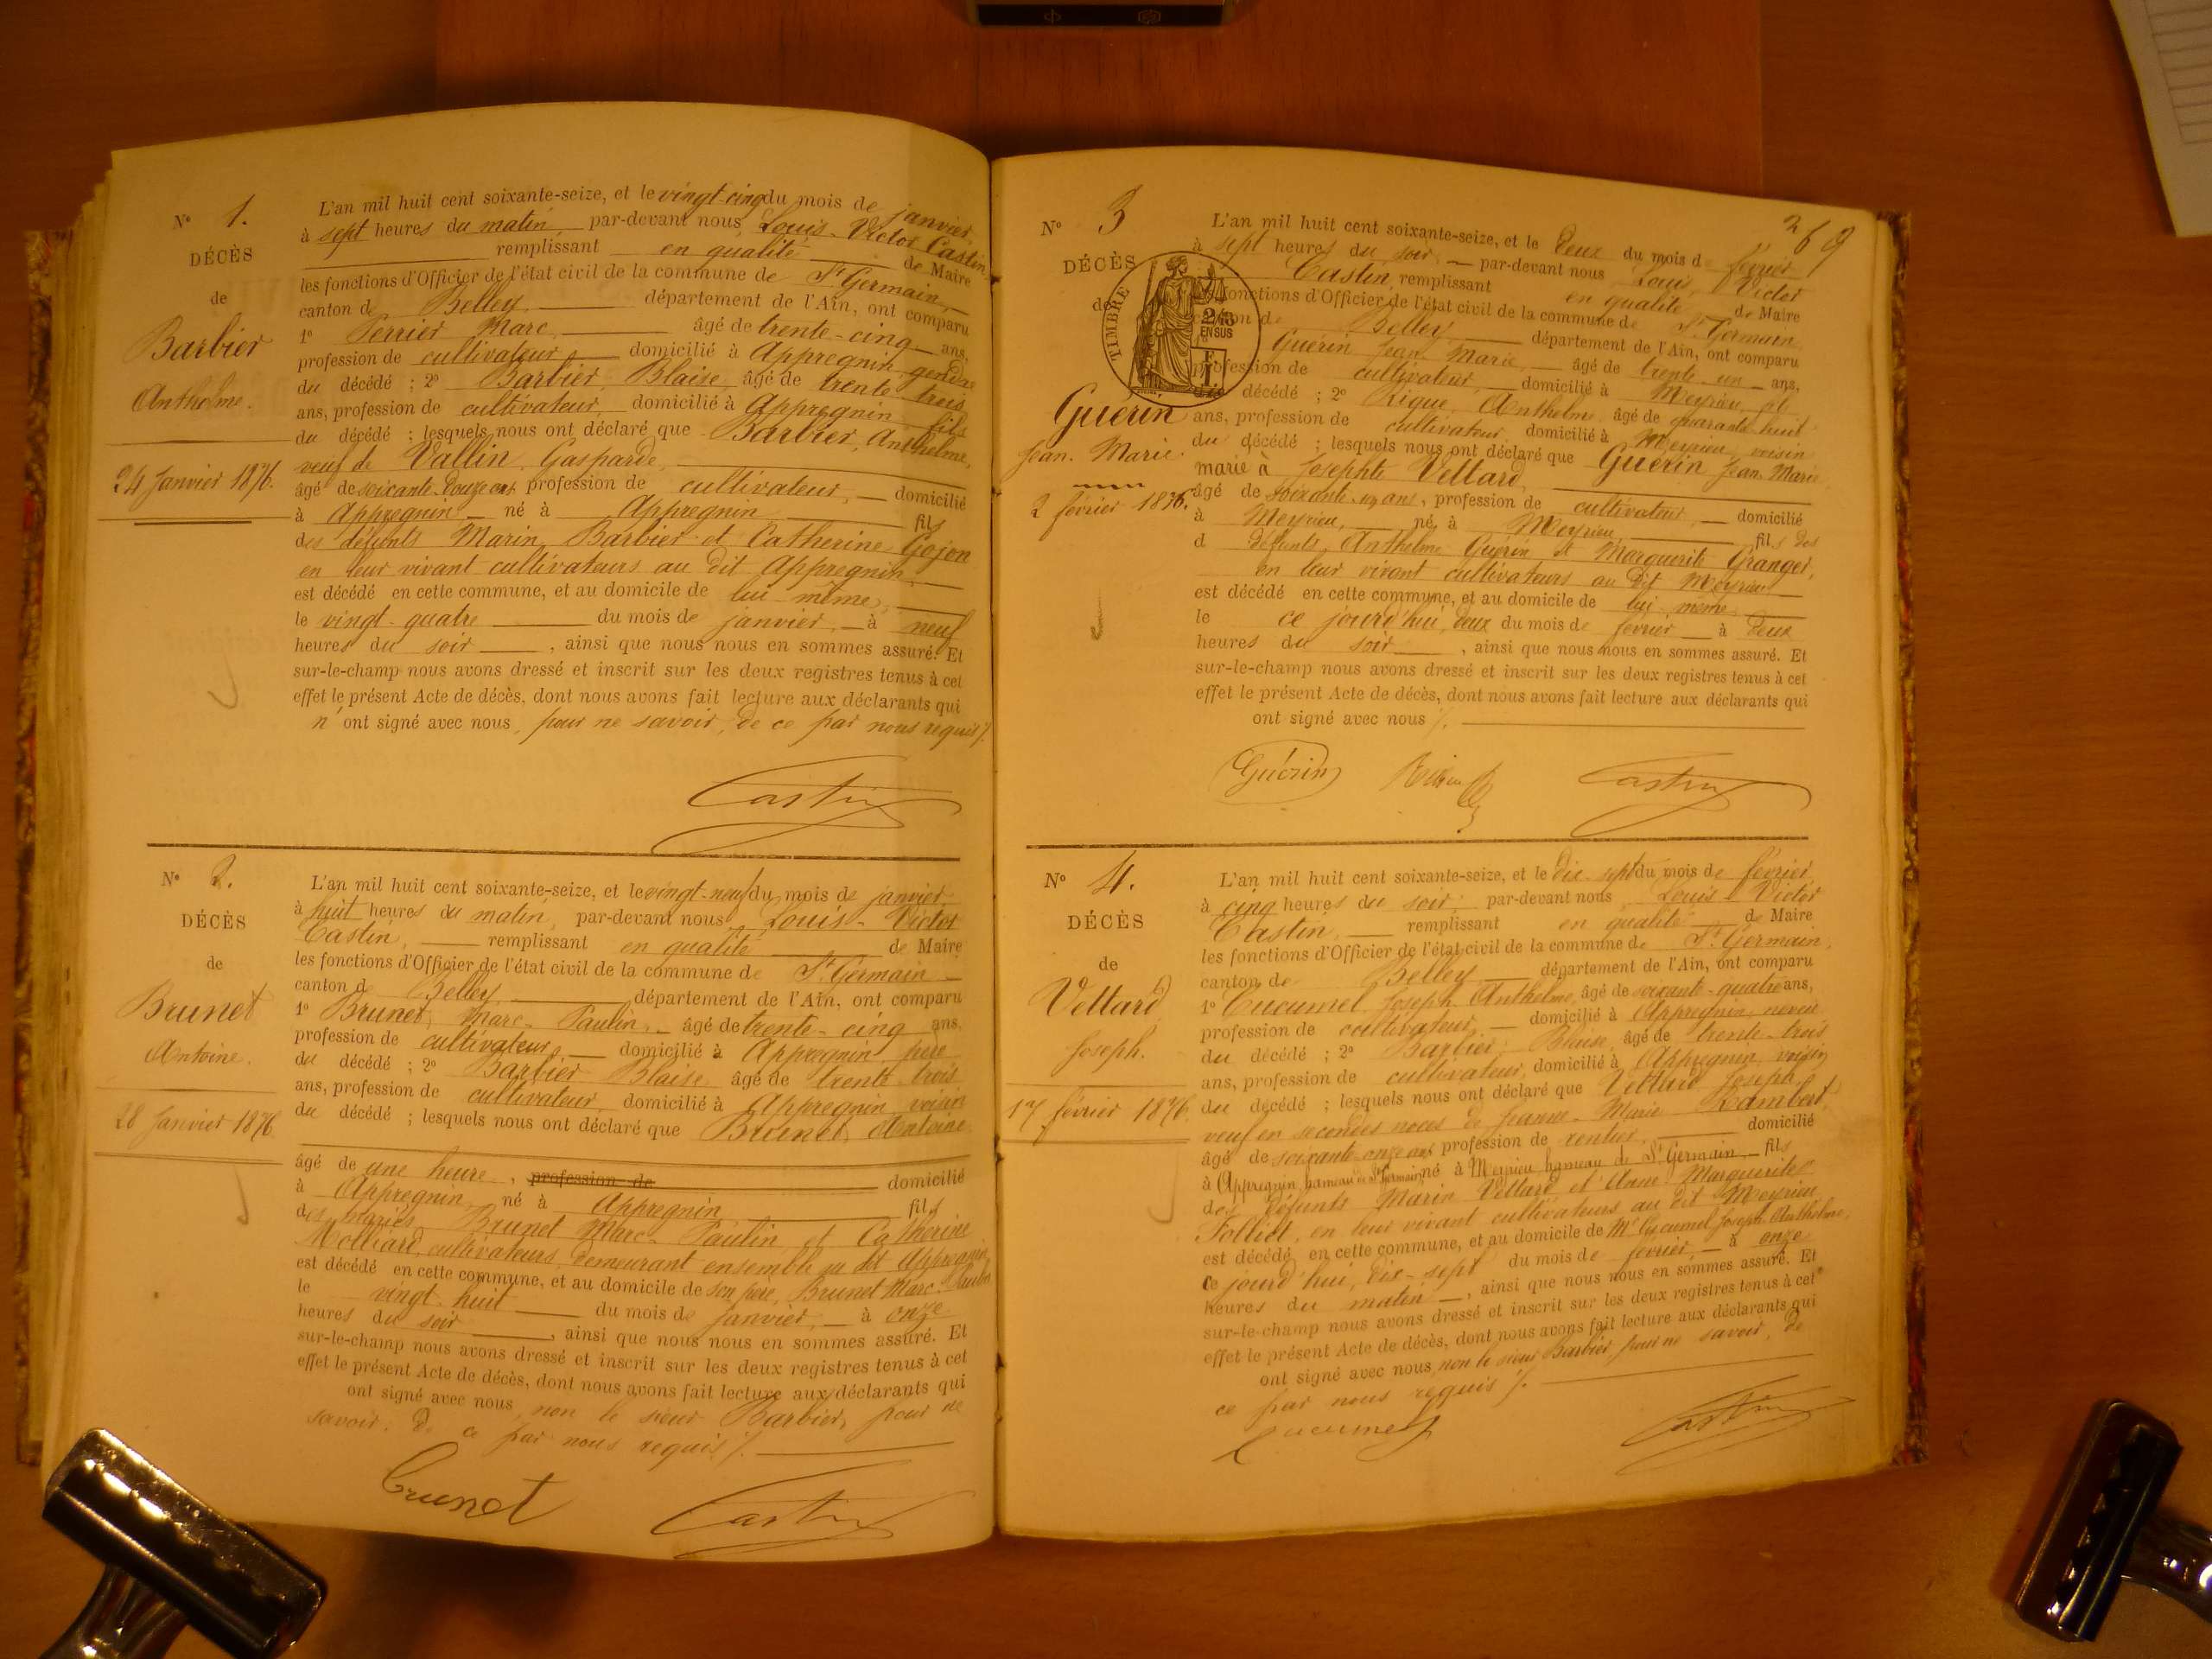 N° 1.
DÉCÈS
de
Barbier
Anthelme.
24 Janvier 1876.
L'an mil huit cent soixante-seize, et le vingt-cinq du mois de janvier
à sept heures du matin, par-devant nous, Louis-Victor Castin
remplissant en qualité de Maire
les fonctions d'Officier de l'état civil de la commune de St Germain,
canton de Belley, département de l'Ain, ont comparu
1° Perrier Marc, âgé de trente-cinq ans,
profession de cultivateur, domicilié à Appregnin, gendre
du décédé ; 2° Barbier, Blaise, âgé de trente-trois
ans, profession de cultivateur, domicilié à Appregnin, fils
du décédé ; lesquels nous ont déclaré que Barbier, Anthelme,
veuf de Vallin, Gasparde,
âgé de soixante-douze ans profession de cultivateur, domicilié
à Appregnin, né à Appregnin fils
des défunts Marin Barbier et Catherine Gojon
en leur vivant cultivateurs au dit Appregnin,
est décédé en cette commune, et au domicile de lui-même,
le vingt-quatre du mois de janvier, à neuf
heures du soir, ainsi que nous nous en sommes assuré. Et
sur-le-champ nous avons dressé et inscrit sur les deux registres tenus à cet
effet le présent Acte de décès, dont nous avons fait lecture aux déclarants qui
n'ont signé avec nous, pour ne savoir, de ce par nous requis ./.
Castin
N° 2.
DÉCÈS
de
Brunet
Antoine.
28 Janvier 1876
L'an mil huit cent soixante-seize, et le vingt-neuf du mois de janvier,
à huit heures du matin, par-devant nous, Louis-Victor
Castin, remplissant en qualité de Maire
les fonctions d'Officier de l'état civil de la commune de St Germain
canton de Belley, département de l'Ain, ont comparu
1° Brunet, Marc-Paulin, âgé de trente-cinq ans,
profession de cultivateur, domicilié à Appregnin, père
du décédé ; 2° Barbier Blaise âgé de trente-trois
ans, profession de cultivateur, domicilié à Appregnin, voisin
du décédé ; lesquels nous ont déclaré que Brunet, Antoine
âgé de une heure, profession de domicilié
à Appregnin, né à Appregnin fils
des mariés Brunet Marc-Paulin et Catherine
Molliard, cultivateurs, demeurant ensemble au dit Appregnin
est décédé en cette commune, et au domicile de son père, Brunet Marc-Paulin
le vingt-huit du mois de janvier, à onze
heures du soir, ainsi que nous nous en sommes assuré. Et
sur-le-champ nous avons dressé et inscrit sur les deux registres tenus à cet
effet le présent Acte de décès, dont nous avons fait lecture aux déclarants qui
ont signé avec nous, non le sieur Barbier, pour ne
savoir, de ce par nous requis ./.
Brunet Castin
269
N° 3
DÉCÈS
de
Guérin
Jean. Marie.
2 février 1876.
TIMBRE
2/10
EN SUS
L'an mil huit cent soixante-seize, et le deux du mois de février
à sept heures du soir, par-devant nous Louis, Victor
Castin, remplissant en qualité de Maire
les fonctions d'Officier de l'état civil de la commune de St Germain
canton de Belley, département de l'Ain, ont comparu
Guérin Jean Marie, âgé de trente-un ans,
profession de cultivateur, domicilié à Meyrieu, fils
du décédé ; 2° Anthelme âgé de quarante-huit
ans, profession de cultivateur, domicilié à Meyrieu, voisin
du décédé ; lesquels nous ont déclaré que Guérin Jean-Marie
marié à Josephte Vettard,
âgé de soixante- ans, profession de cultivateur, domicilié
à Meyrieu, né à Meyrieu, fils des
d défunts Anthelme Guérin et Marguerite Granger,
en leur vivant cultivateurs au dit Meyrieu
est décédé en cette commune, et au domicile de lui-même
le ce jourd'hui, deux du mois de février à deux
heures du soir, ainsi que nous nous en sommes assuré. Et
sur-le-champ nous avons dressé et inscrit sur les deux registres tenus à cet
effet le présent Acte de décès, dont nous avons fait lecture aux déclarants qui
ont signé avec nous ./.
Guérin Castin
N° 4.
DÉCÈS
de
Vettard
Joseph.
17 février 1876.
L'an mil huit cent soixante-seize, et le dix-sept du mois de février,
à cinq heures du soir, par-devant nous Louis Victor
Castin, remplissant en qualité de Maire
les fonctions d'Officier de l'état civil de la commune de St Germain,
canton de Belley département de l'Ain, ont comparu
1° Cucumel Joseph Anthelme, âgé de soixante-quatre ans,
profession de cultivateur, domicilié à Appregnin, neveu
du décédé ; 2° Barbier, Blaise, âgé de trente-trois
ans, profession de cultivateur, domicilié à Appregnin, voisin
du décédé ; lesquels nous ont déclaré que Vettard Joseph,
veuf en secondes noces de Jeanne-Marie Lambert,
âgé de soixante-onze ans profession de rentier, domicilié
à Appregnin hameau de St Germain né à Meyrieu hameau de St Germain fils
des défunts Marin Vettard et Anne Marguerite
Folliet, en leur vivant cultivateurs au dit Meyrieu
est décédé en cette commune, et au domicile de Mr Cucumel Joseph Anthelme,
ce jourd'hui, dix-sept du mois de février, à onze
heures du matin, ainsi que nous nous en sommes assuré. Et
sur-le-champ nous avons dressé et inscrit sur les deux registres tenus à cet
effet le présent Acte de décès, dont nous avons fait lecture aux déclarants qui
ont signé avec nous, non le sieur Barbier, pour ne savoir, de
ce par nous requis ./.
Cucumel Castin